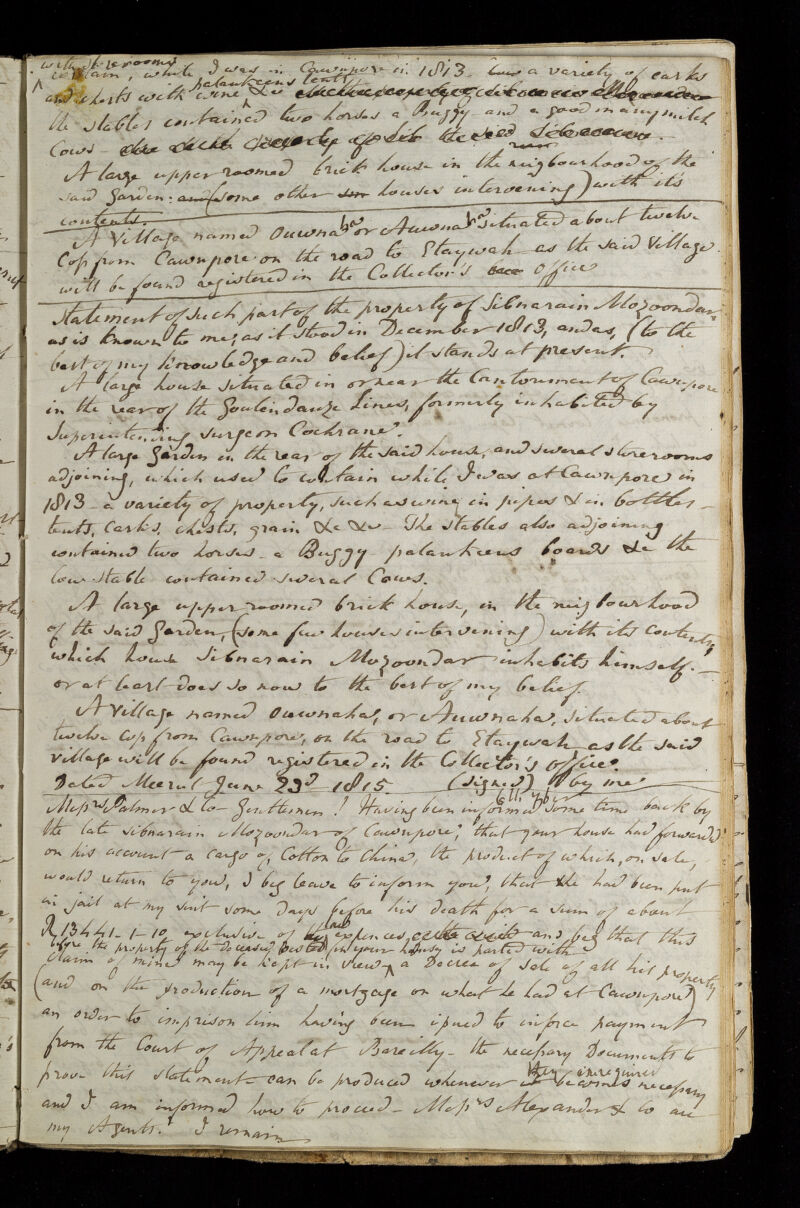 with storerooms
contain, while I was in Cawnpore in 1813 a variety of casks
palankeens
and chests with wine &c
the stables contained two horses a Buggy and a good many milch
Cows
A large upper roomed brick house in the neighbourhood of the
said Garden: and (some other houses intervening) with it's
contents.
A Village named Ouwnaha or Auwnaha situated about twelve
Cos from Cawnpore on the road to Etaywah as the said Village
will be found registered in the Collector's Office
Statement of such part of the property of Sibnarain Mozoondar
as is known to me; as it stood in December 1813, and as, (to the
best of my knowledge and belief) it stands at present.
A large house situated in or near the Cantonment of Cawnpore
in the rear of the Goulendauze Lines, formerly inhabited by
Superintending Surgeon Cochrane.
A large Garden in the rear of the said house, and several storerooms
adjoining, which used to contain while I was at Cawnpore in
1813 a variety of property, such as wine, in pipes & in bottles
tents, casks, chests, grain &c &c The stables also adjoining
contained two horses - a Buggy palankeens boards &c the
cow stable contained several Cows.
A large upper roomed brick house, in the neigbourhood
of the said Garden, (some few houses intervening) with its contents,
which house Sibnarain Mozoondar inhabits himself.
or at least does so now to the best of my belief.
A Village named Ouwnaha, or Auwnaha, situated about
twelve cos from Cawnpore, on the road to Etaywah, as the said
Village will be found registered in the Collector's office.
Dated Meerut June 23d 1815 (signed) by me
Messrs Palmer & Co Gentlemen! Having been informed some time back by
the late Sibnarain Mozoondar of Cawnpore, that your house had forwarded
on his account a cargo of Cotton to China, the product of which, on sale,
would return to you, I beg leave to inform you, that he had been put
in jail at my suit some days before his death for a sum of about
Rs 13441-1-10 exclusive of expences, and beg that this
before the property of the Deceased vested in your house is parted with
claim of mine may be kept in view, a Decree of sale of all his property
(and on the production of a mortgage on what he had at Cawnpore)
an order to imprison him having been issued to inforce payment
from the Court of Appeal at Bareilly - the necessary Documents to
prove this statement can be produced whenever becomes necessary
and I am informed how to proceed - Messrs Alexander & Co are
my Agents. I remain